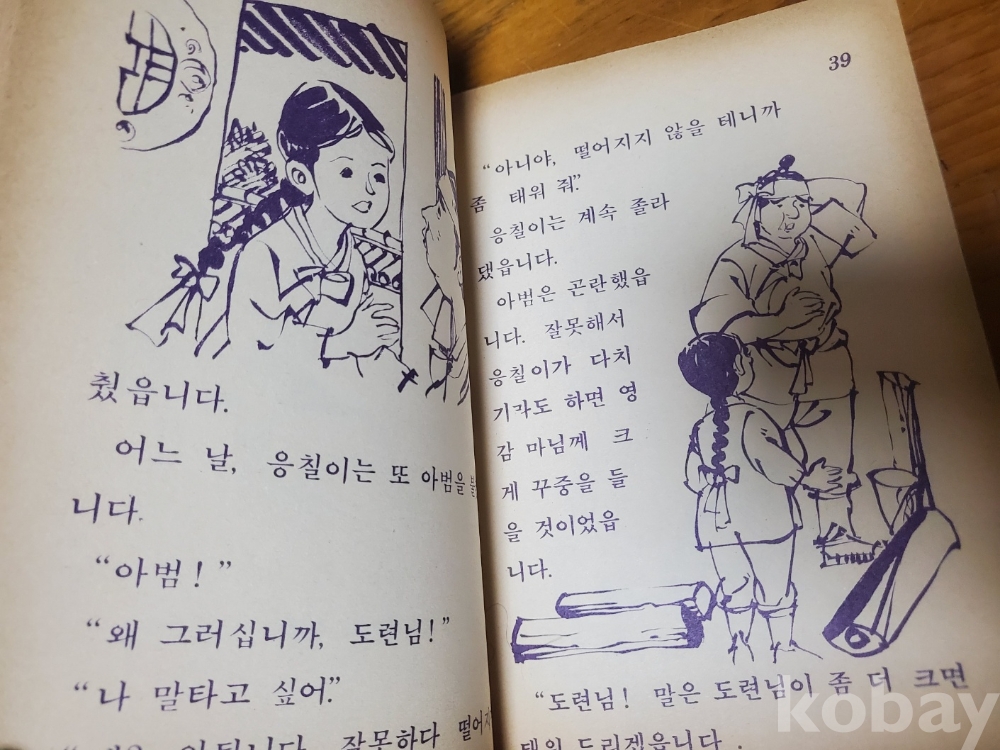 췄읍니다.
어느 날, 응칠이는 또 아범을
니다.
“아범!”
“왜 그러십니까, 도련님!”
“나 말타고 싶어.”
잘못하다 떨어지
39
“아니야, 떨어지지 않을 테니까
좀 태워 줘.”
응칠이는 계속 졸라
댔읍니다.
아범은 곤란했읍
니다. 잘못해서
응칠이가 다치
기각도 하면 영
감 마님께 크
게 꾸중을 들
을 것이었읍
니다.
“도련님! 말은 도련님이 좀 더 크면
태워 드리겠읍니다.
kobay